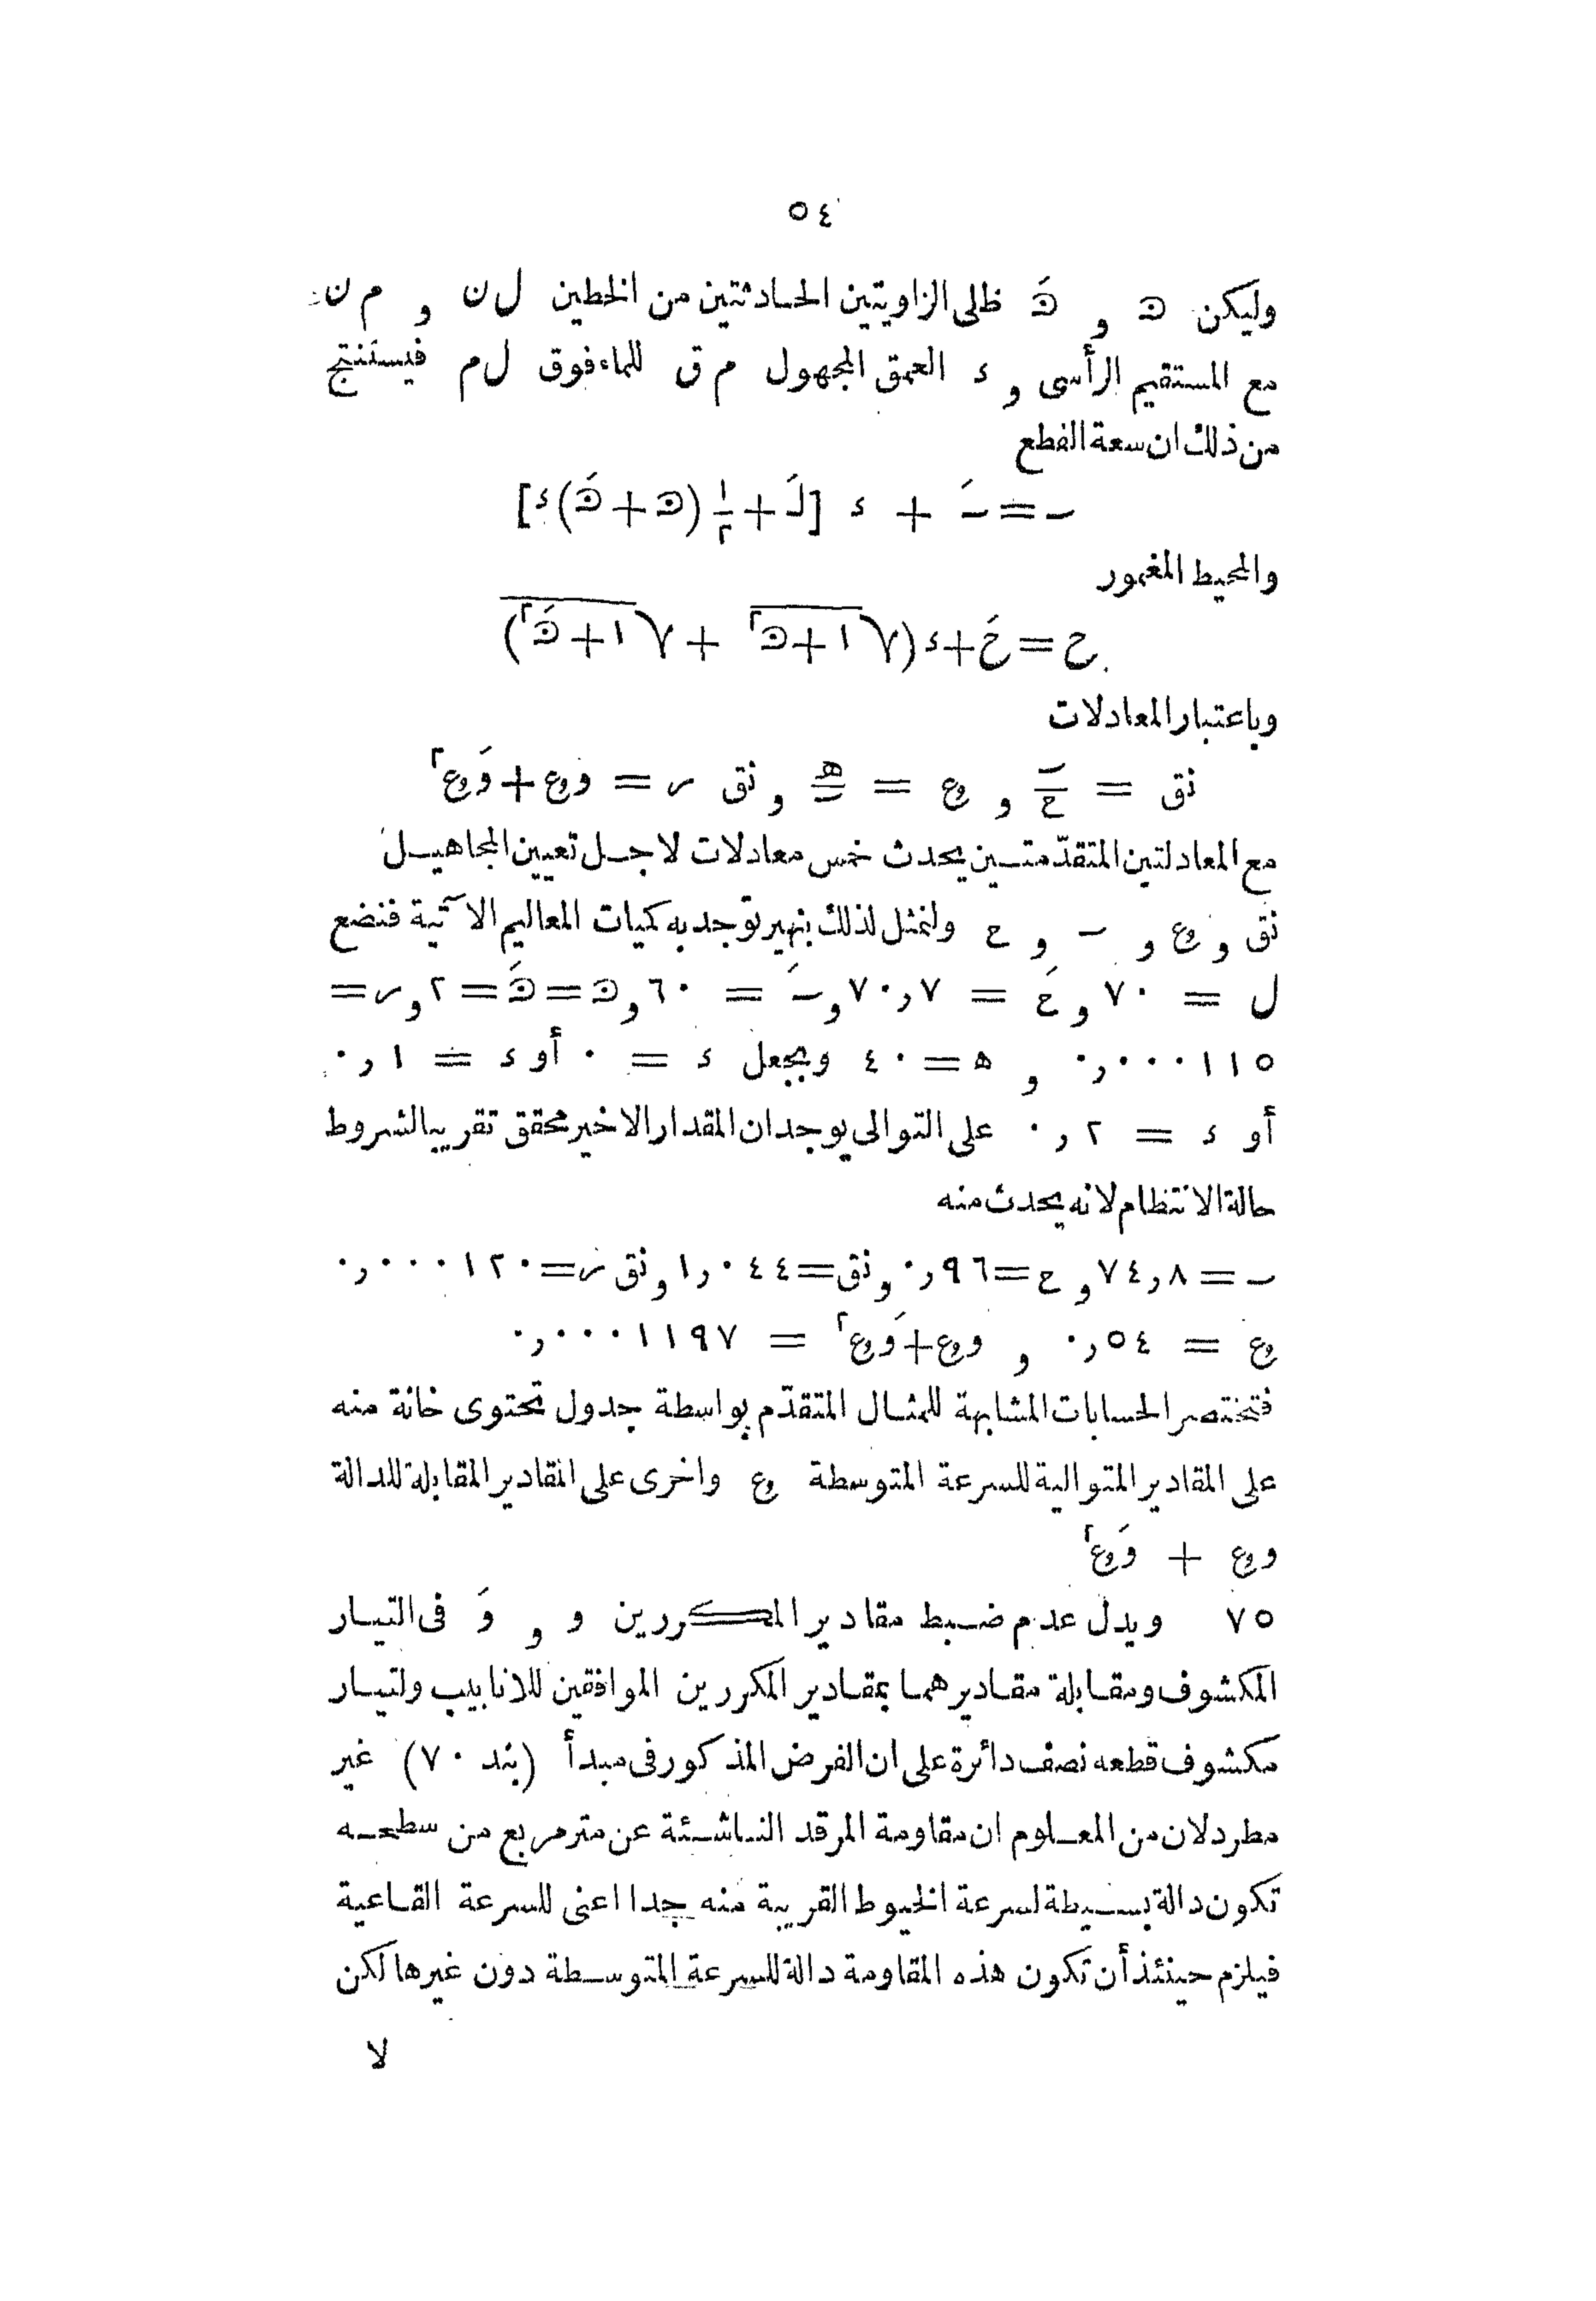 ٥٤
وليكن ᘐ و ᘐَ ظلى الزاويتين الحادثتين من الخطين ل ن و م ن
مع المستقيم الرأسى و ء العمق المجهول م ق للماء فوق ل م فيستنتج
من ذلك ان سعة القطع
ـ = ـَ + ء [لَ + ١/٢ (ᘐ + ᘐَ) ء]
والمحيط المغمور
ح = حَ + ء (√(١ + ᘐ²) + √(١ + ᘐَ²))
وباعتبار المعادلات
نق = ـ/ح و ع = ه/ـ و نق ر = وع + وَع²
مع المعادلتين المتقدّمتين يحدث خمس معادلات لاجل تعيين المجاهيل
نق و ع و ـ و ح ولنمثل لذلك بنهير توجد به كميات المعاليم الآتية فنضع
ل = ٧٠ و حَ = ٧٠٫٧ و ـَ = ٦٠ و ᘐ = ᘐَ = ٢ و ر =
٠٫٠٠٠١١٥ و ه = ٤٠ ويجعل ء = ٠ أو ء = ٠٫١
أو ء = ٠٫٢ على التوالى يوجد ان المقدار الاخير محقق تقريبا لشروط
حالة الانتظام لانه يحدث منه
ـ = ٧٤٫٨ و ح = ٠٫٩٦ و نق = ١٫٠٤٤ و نق ر = ٠٫٠٠٠١٢٠
ع = ٠٫٥٤ و وع + وَع² = ٠٫٠٠٠١١٩٧
فتختصر الحسابات المشابهة للمثال المتقدّم بواسطة جدول تحتوى خانة منه
على المقادير المتوالية للسرعة المتوسطة ع واخرى على المقادير المقابلة للدالة
وع + وَع²
٧٥ ويدل عدم ضبط مقادير المكررين و و وَ فى التيار
المكشوف ومقابلة مقاديرهما بمقادير المكررين الموافقين للانابيب ولتيار
مكشوف قطعه نصف دائرة على ان الفرض المذكور فى مبدأ (بند ٧٠) غير
مطرد لان من المعلوم ان مقاومة المرقد الناشئة عن متر مربع من سطحه
تكون دالة بسيطة لسرعة الخيوط القريبة منه جدا اعنى للسرعة القاعية
فيلزم حينئذ أن تكون هذه المقاومة دالة للسرعة المتوسطة دون غيرها لكن
لا